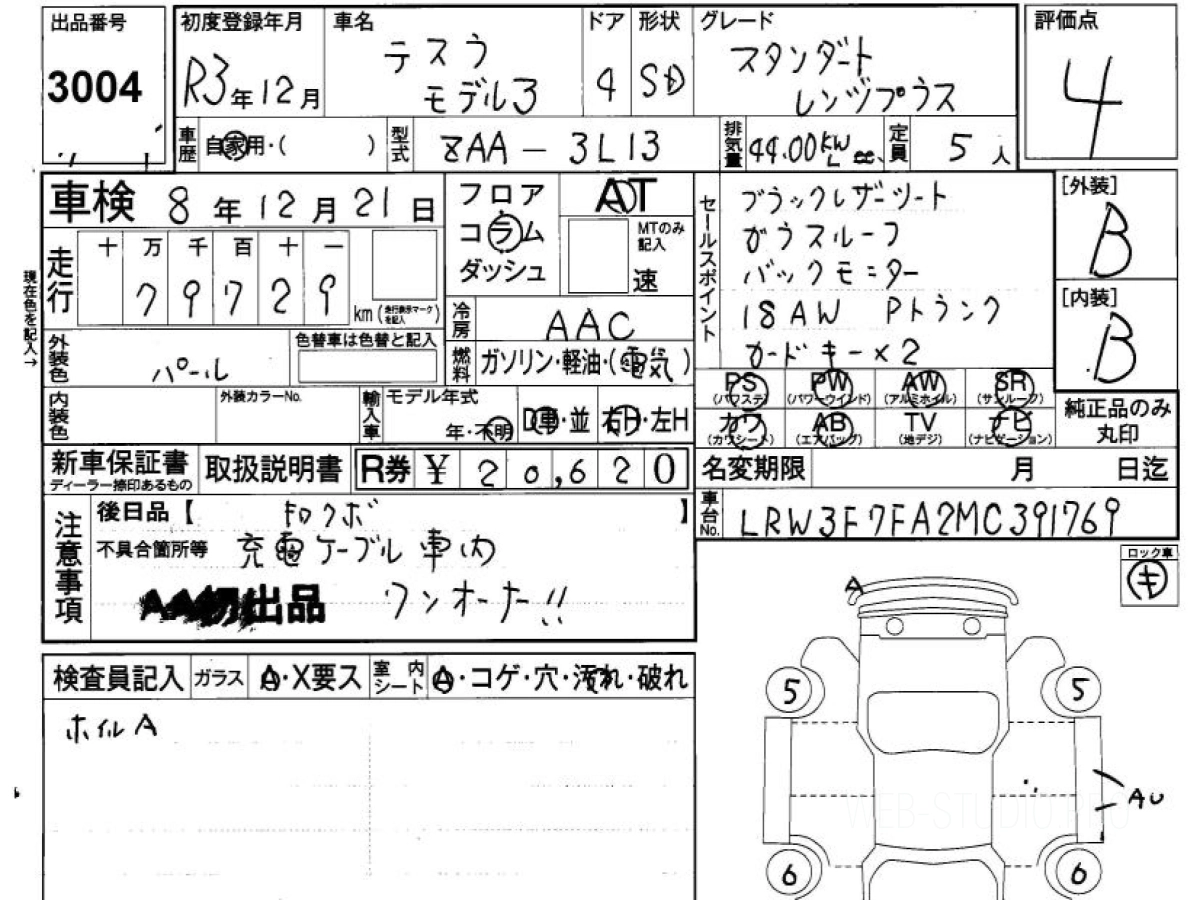 出品番号
3004
初度登録年月
R3年12月
車名
テスラ
モデル3
ドア
4
形状
SD
グレード
スタンダート
レンジプラス
評価点
4
車歴
自家用・( )
型式
ZAA-3L13
排気量
44.00 KW
L cc
定員
5人
車検 8年12月21日
走行
十 万 千 百 十 一
7 9 7 2 9
km (走行表示マークを記入)
現在色を記入→
フロア
コラム
ダッシュ
AT
MTのみ記入
速
セールスポイント
ブラックレザーシート
ガラスルーフ
バックモニター
18AW Pトランク
カードキー×2
[外装]
B
[内装]
B
冷房
AAC
燃料
ガソリン・軽油・(電気)
外装色
パール
色替車は色替と記入
内装色
外装カラーNo.
輸入車
モデル年式
年・不明
D車・並
右H・左H
PS
(パワステ)
PW
(パワーウインド)
AW
(アルミホイル)
SR
(サンルーフ)
カワ
(カワシート)
AB
(エアバッグ)
TV
(地デジ)
ナビ
(ナビゲーション)
純正品のみ
丸印
新車保証書
ディーラー捺印あるもの
取扱説明書
R券 ¥ 20,620
名変期限 月 日迄
車台No.
LRW3F7FA2MC391769
注意事項
後日品【 】
不具合箇所等
充電ケーブル車内
出品 ワンオーナー!!
ロック車
キ
検査員記入
ガラス
A・X要ス
室内シート
A・コゲ・穴・汚れ・破れ
ホイルA
A
5
5
AU
6
6
WEB-STUDIO.PRO